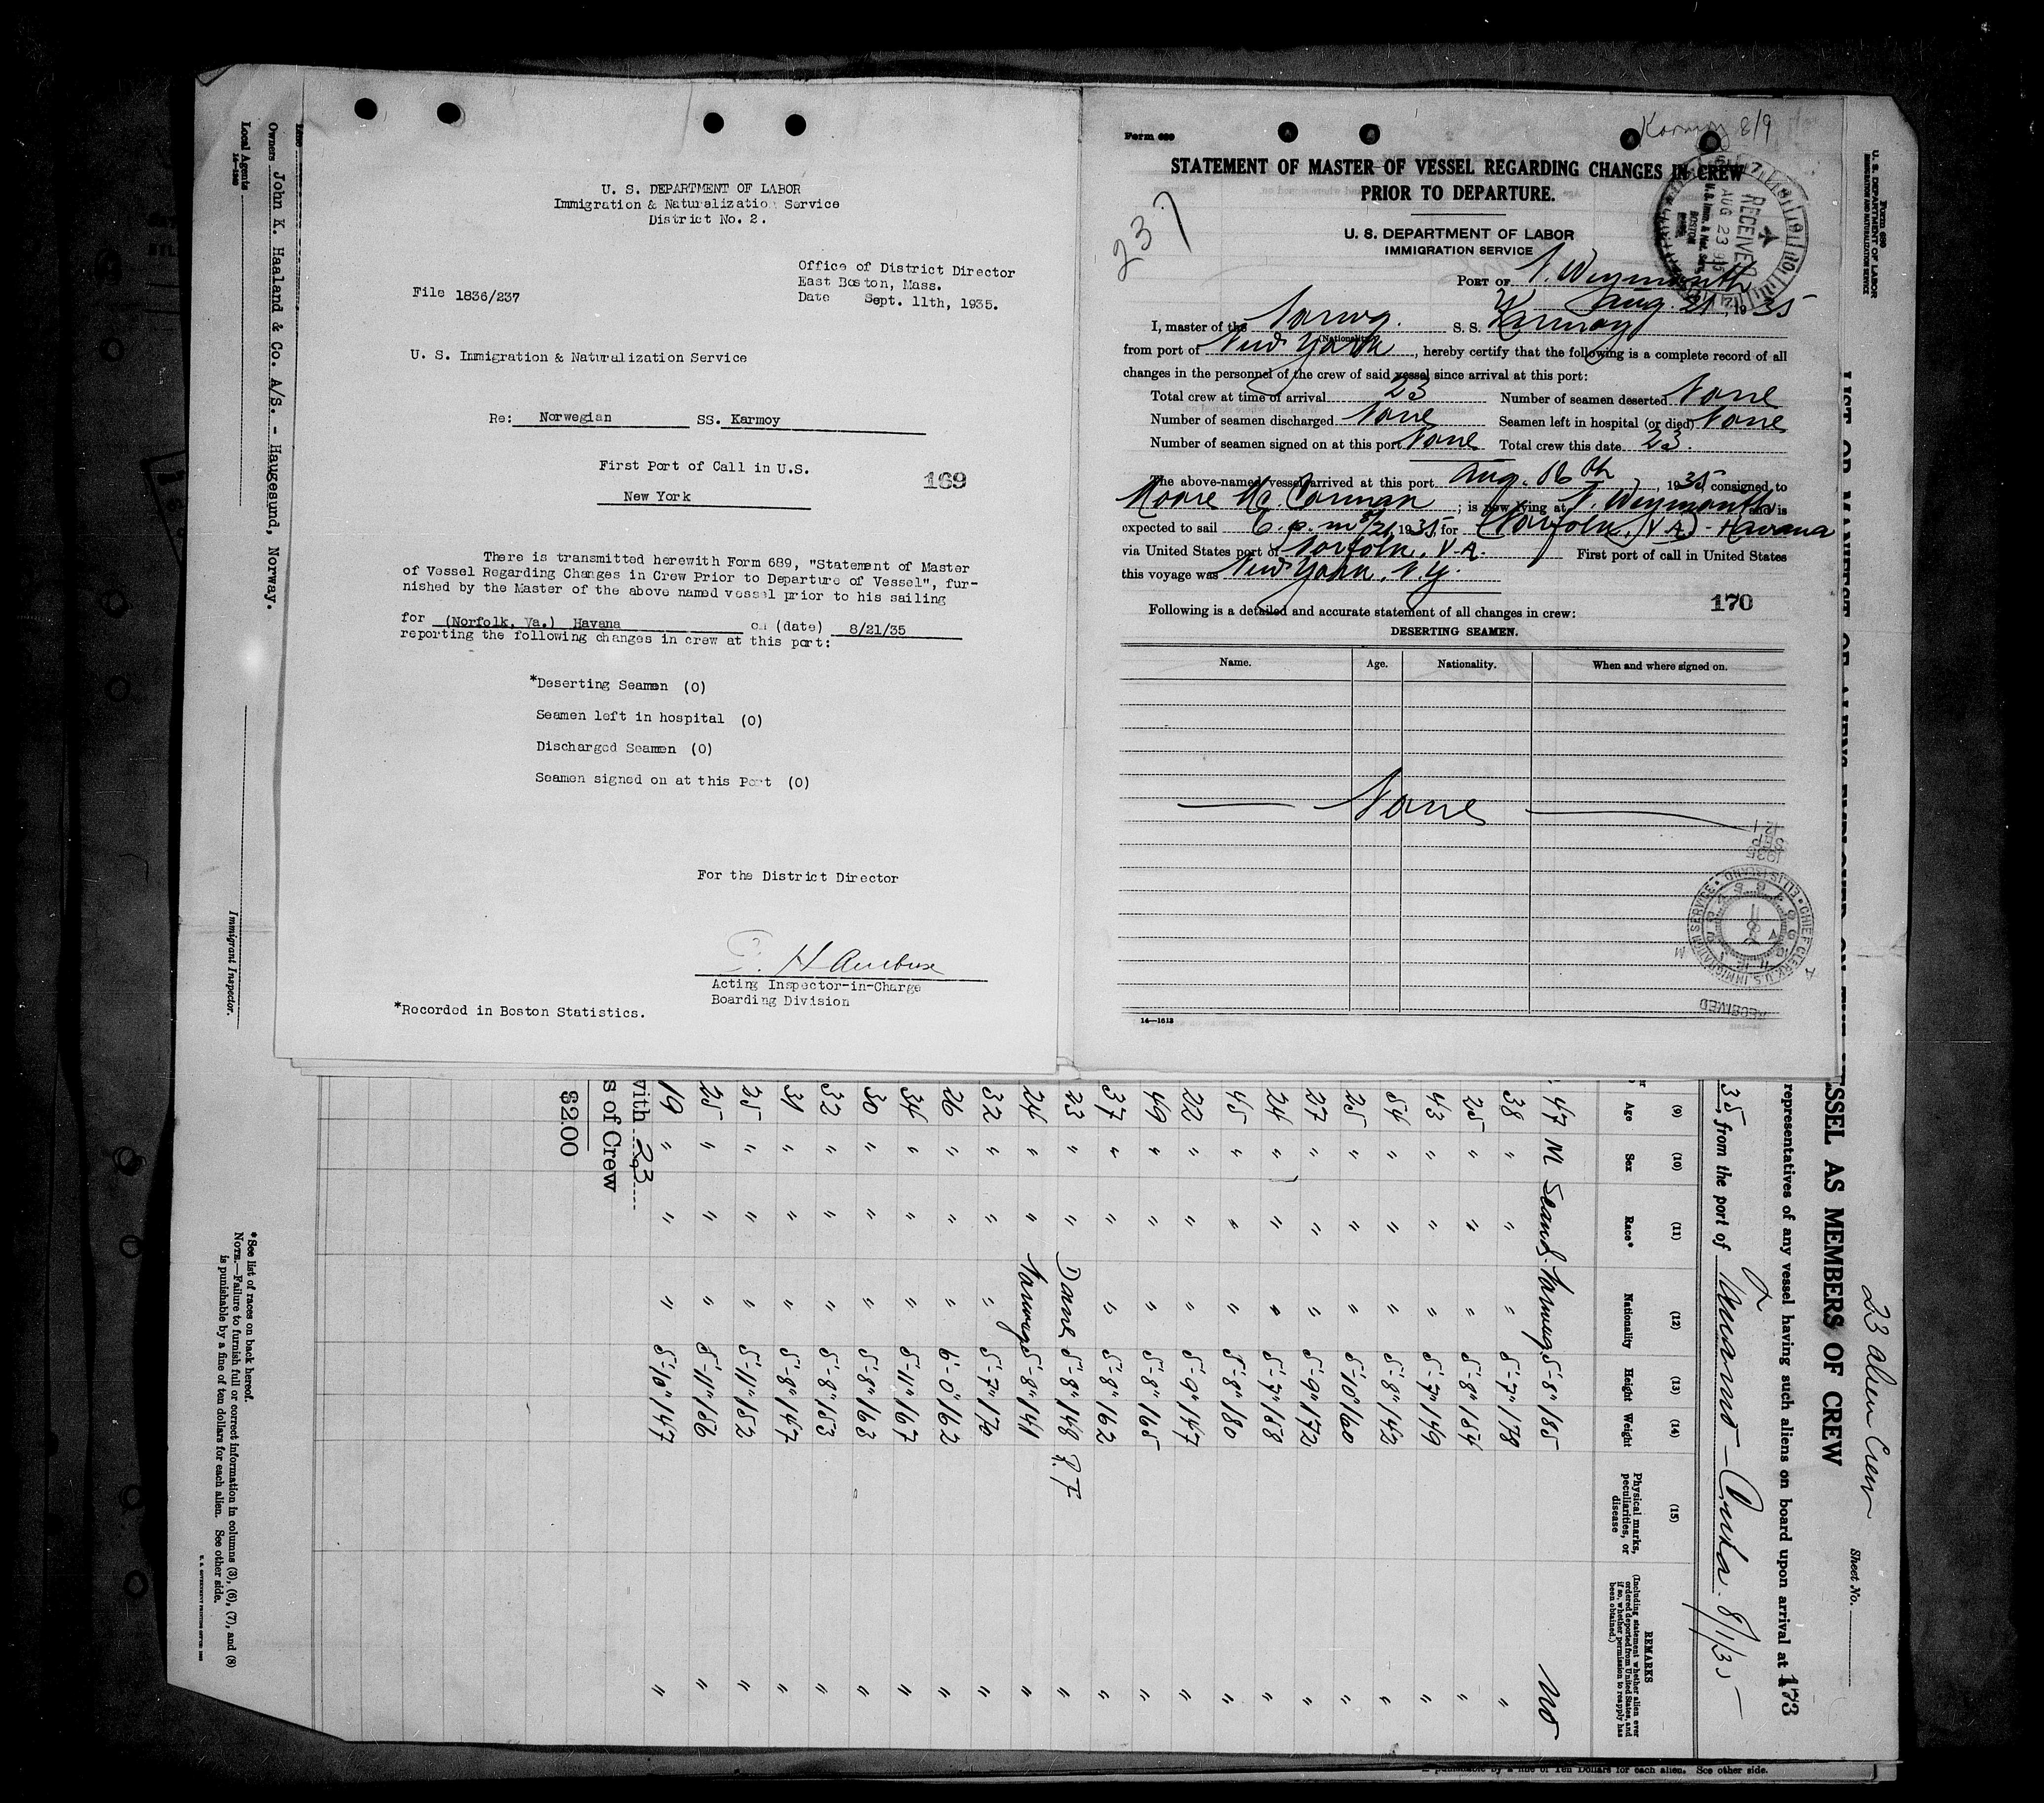 U. S. DEPARTMENT OF LABOR
Immigration & Naturalization Service
District No. 2.
Office of District Director
East Boston, Mass.
Date Sept. 11th, 1935.
File 1836/237
U. S. Immigration & Naturalization Service
Re: Norwegian SS. Karmoy
First Port of Call in U.S.
169
New York
There is transmitted herewith Form 689, "Statement of Master
of Vessel Regarding Changes in Crew Prior to Departure of Vessel", fur-
nished by the Master of the above named vessel prior to his sailing
for (Norfolk, Va.) Havana on (date) 8/21/35
reporting the following changes in crew at this port:
*Deserting Seamen (0)
Seamen left in hospital (0)
Discharged Seamen (0)
Seamen signed on at this Port (0)
For the District Director
Acting Inspector-in-Charge
Boarding Division
*Recorded in Boston Statistics.
Form 689
Karmoy 8/9
STATEMENT OF MASTER OF VESSEL REGARDING CHANGES IN CREW
PRIOR TO DEPARTURE.
237
U. S. DEPARTMENT OF LABOR
IMMIGRATION SERVICE
RECEIVED
AUG 23
BOSTON
PORT OF N. Weymouth
Aug. 21, 1935
I, master of the Norweg. S. S. Karmoy
(Nationality)
from port of New York, hereby certify that the following is a complete record of all
changes in the personnel of the crew of said vessel since arrival at this port:
Total crew at time of arrival 23 Number of seamen deserted None
Number of seamen discharged None Seamen left in hospital (or died) None
Number of seamen signed on at this port None Total crew this date 23.
The above-named vessel arrived at this port Aug. 16th, 1935, consigned to
Moore Mc Cormack; is now lying at N. Weymouth and is
expected to sail 6 p.m 8/21 1935, for (Norfolk, VA) - Havana
via United States port of Norfolk, VA. First port of call in United States
this voyage was New York, N.Y.
170
Following is a detailed and accurate statement of all changes in crew:
DESERTING SEAMEN.
Name. Age. Nationality. When and where signed on.
None
1935
SEP
12
RECEIVED
CHIEF CLERK U.S. IMMIGRATION SERVICE
ELLIS ISLAND
A M
14—1613
Form 689
U. S. DEPARTMENT OF LABOR
IMMIGRATION AND NATURALIZATION SERVICE
23 alien Crew
Sheet No.
SSEL AS MEMBERS OF CREW
representatives of any vessel having such aliens on board upon arrival at 173
35, from the port of - Cuba. 8/1/35 -
(9) (10) (11) (12) (13) (14) (15)
Age Sex Race* Nationality Height Weight Physical marks, peculiarities, or disease
REMARKS
(Including statement whether alien ever ordered deported from United States, and if so, whether permission to reapply has been obtained.)
47 M Scand. Norweg. 5'-8" 185 no
38 " " " 5'-7" 178 "
25 " " " 5'-8" 154 "
43 " " " 5'-7" 149 "
54 " " " 5'-8" 142 "
25 " " " 5'-10" 160 "
27 " " " 5'-9" 172 "
24 " " " 5'-7" 158 "
45 " " " 5'-8" 180 "
22 " " " 5'-9" 147 "
49 " " " 5'-8" 165 "
37 " " " 5'-8" 162 "
23 " " Dane 5'-8" 148 "
24 " " Norweg 5'-8" 141 "
32 " " " 5'-7" 170 "
26 " " " 6'-0" 162 "
34 " " " 5'-11" 167 "
30 " " " 5'-8" 163 "
32 " " " 5'-8" 153 "
31 " " " 5'-8" 147 "
25 " " " 5'-11" 152 "
25 " " " 5'-11" 156 "
19 " " " 5'-10" 147 "
with 23
s of Crew
$2.00
*See list of races on back hereof.
NOTE.—Failure to furnish full or correct information in columns (3), (6), (7), and (8)
is punishable by a fine of ten dollars for each alien. See other side.
Owners John K. Haaland & Co. A/S. - Haugesund, Norway.
Local Agents
14—1240
Immigrant Inspector.
is punishable by a fine of Ten Dollars for each alien. See other side.